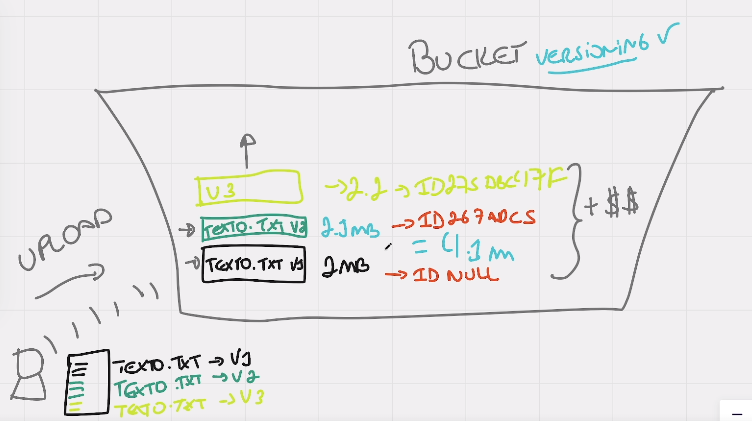 BUCKET VERSIONING
V3 → 2.2 →
TEXTO.TXT V2 2.1MB → ID267ADCS
= 4.1m
TEXTO.TXT V1 2MB
→ ID NULL
+ $$
UPLOAD
TEXTO.TXT → V1
TEXTO.TXT → V2
TEXTO.TXT → V3